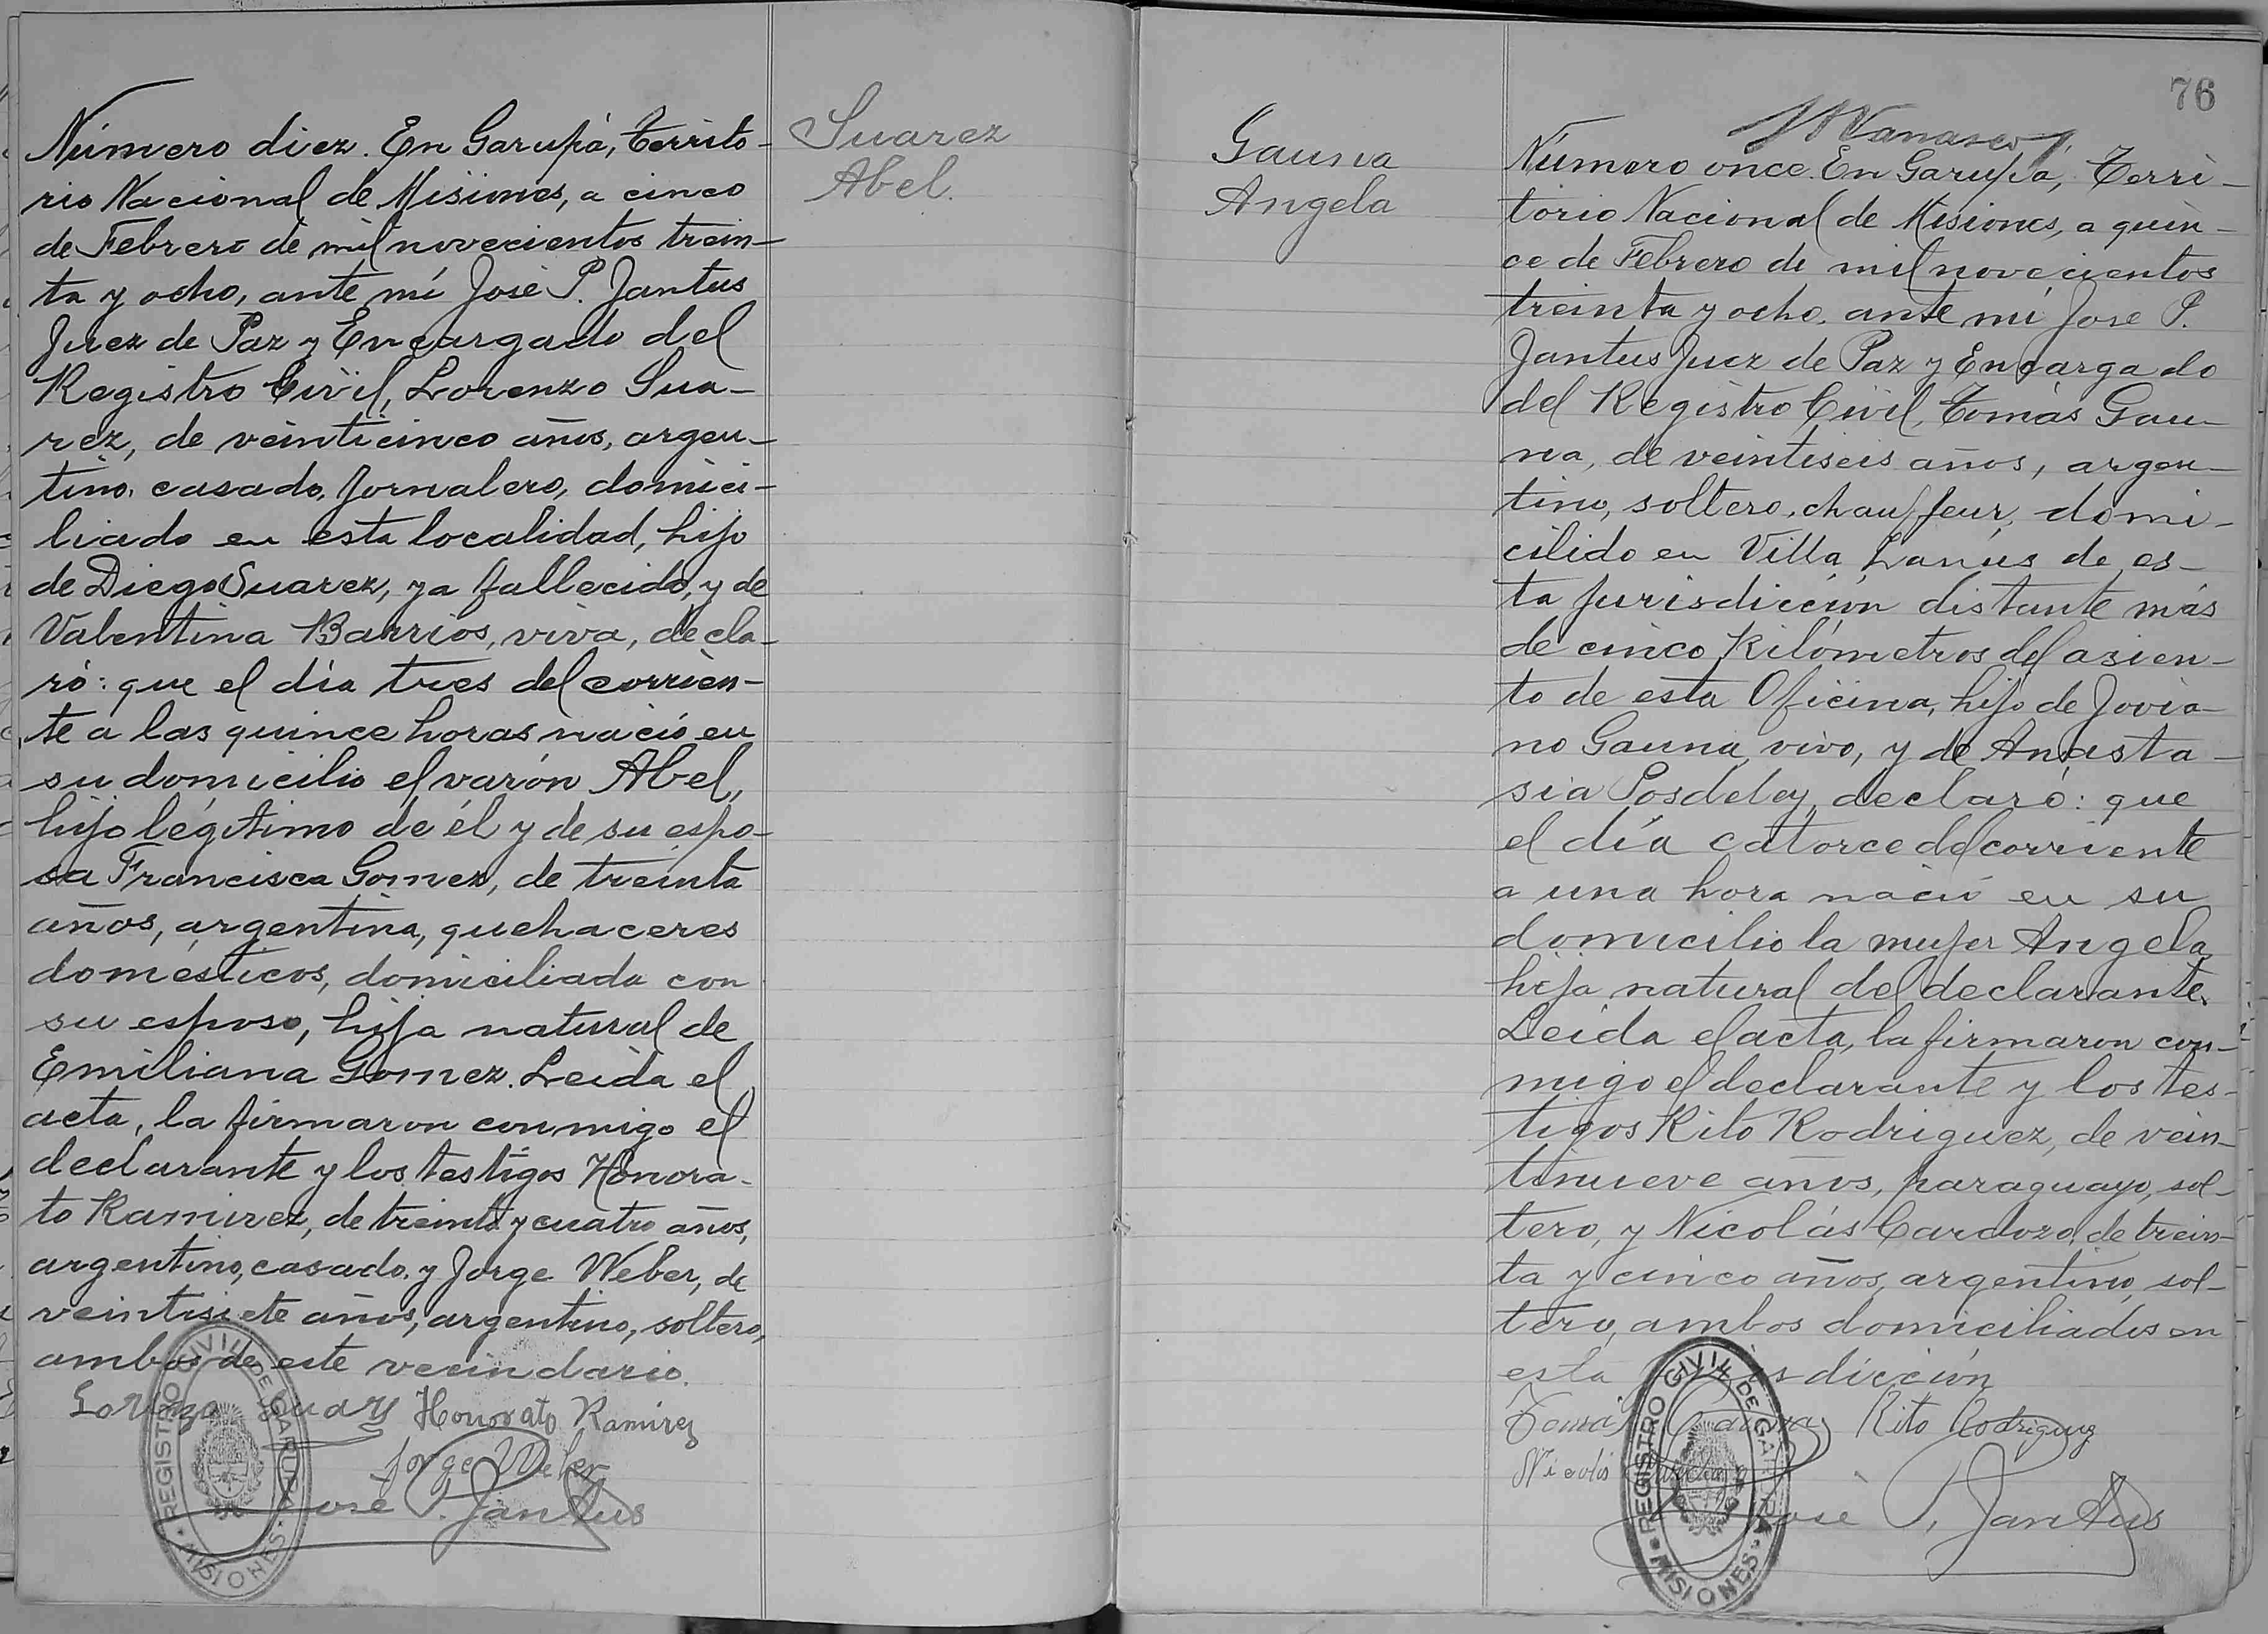 Número diez. En Garupá, Territo-
rio Nacional de Misiones, a cinco
de Febrero de mil novecientos trein-
ta y ocho, ante mí José P. Jantus
Juez de Paz y Encargado del
Registro Civil, Lorenzo Sua-
rez, de veinticinco años, argen-
tino, casado, Jornalero, domici-
liado en esta localidad, hijo
de Diego Suarez, ya fallecido, y de
Valentina Barrios, viva, decla-
ró: que el día tres del corrien-
te a las quince horas nació en
su domicilio el varón Abel,
hijo légitimo de él y de su espo-
sa Francisca Gomez, de treinta
años, argentina, quehaceres
domésticos, domiciliada con
su esposo, hija natural de
Emiliana Gomez. Leida el
acta, la firmaron conmigo el
declarante y los testigos Honora-
to Ramirez, de treinta y cuatro años,
argentino, casado, y Jorge Weber, de
veintisiete años, argentino, soltero,
ambos de este vecindario.
Lorenzo Suarez Honorato Ramirez
Jorge Weber
José P. Jantus
REGISTRO CIVIL DE GARUPA
MISIONES
Suarez
Abel.
Gauna
Angela
76
Número once. En Garupá, Terri-
torio Nacional de Misiones, a quin-
ce de Febrero de mil novecientos
treinta y ocho, ante mí José P.
Jantus Juez de Paz y Encargado
del Registro Civil, Tomás Gau-
na, de veintiseis años, argen-
tino, soltero, chauffeur, domi-
cilido en Villa Lanús de es-
ta jurisdicción distante más
de cinco Kilómetros del asien-
to de esta Oficina, hijo de Jovia-
no Gauna, vivo, y de Anasta-
sia Posdeley, declaró: que
el día catorce del corriente
a una hora nació en su
domicilio la mujer Angela,
hija natural del declarante.
Leida el acta, la firmaron con-
migo el declarante y los tes-
tigos Rito Rodriguez, de vein-
tinueve años, paraguayo, sol-
tero, y Nicolás Cardozo, de trein-
ta y cinco años, argentino, sol-
tero, ambos domiciliados en
esta jurisdicción
Tomás Gauna Rito Rodriguez
Nicolás Cardozo
José P. Jantus
REGISTRO CIVIL DE GARUPA
MISIONES